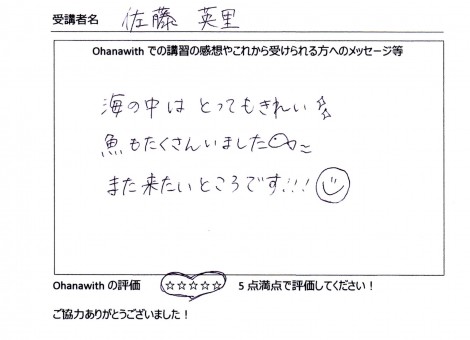 受講者名 佐藤 英里
Ohanawith での講習の感想やこれから受けられる方へのメッセージ等
海の中は とってもきれい☆☆
魚もたくさんいました
また来たいところです!!!
Ohanawith の評価 ☆☆☆☆☆ 5 点満点で評価してください！
ご協力ありがとうございました！